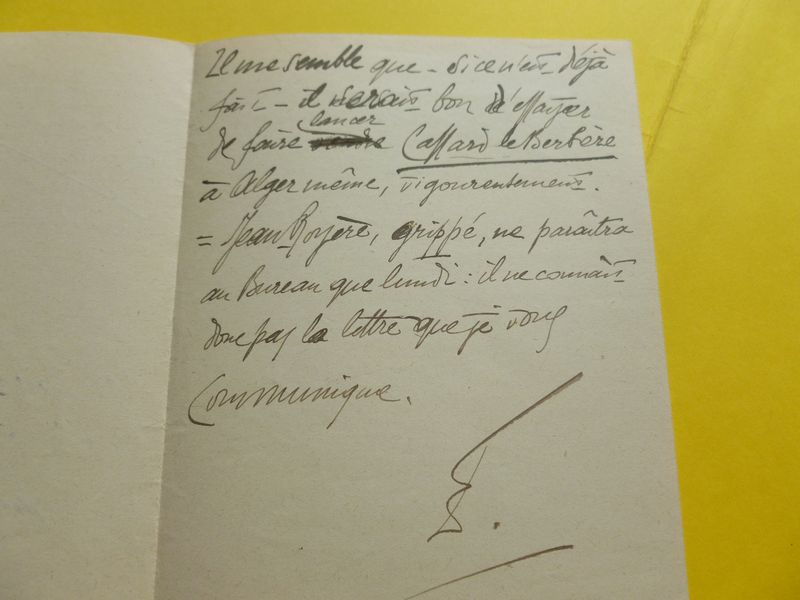 Il me semble que - si ce n'est déjà
fait - il serait bon d'essayer
de faire lancer Cassard le Berbère
à Alger même, vigoureusement.
= Jean Royère, grippé, ne paraîtra
au Bureau que lundi : il ne connaît
donc pas la lettre que je vous
communique.